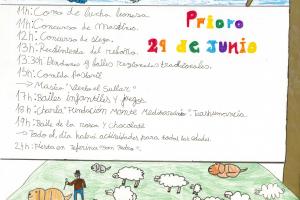 11h: Corro de lucha leonesa.
11h: Concurso de Mastines.
12h: Concurso de siega.
13h: Recibimiento del rebaño.
13:30h Pendones y bailes regionales tradicionales.
15h: Comida pastoril
17h: Bailes infantiles y juegos.
18h: Charla "Fundación Monte Mediterráneo" Trashumancia.
19h: Baile de la rosca y Chocolate
→ Todo el día habrá actividades para todas las edades.
21h: Fiesta en
Prioro
29 de Junio